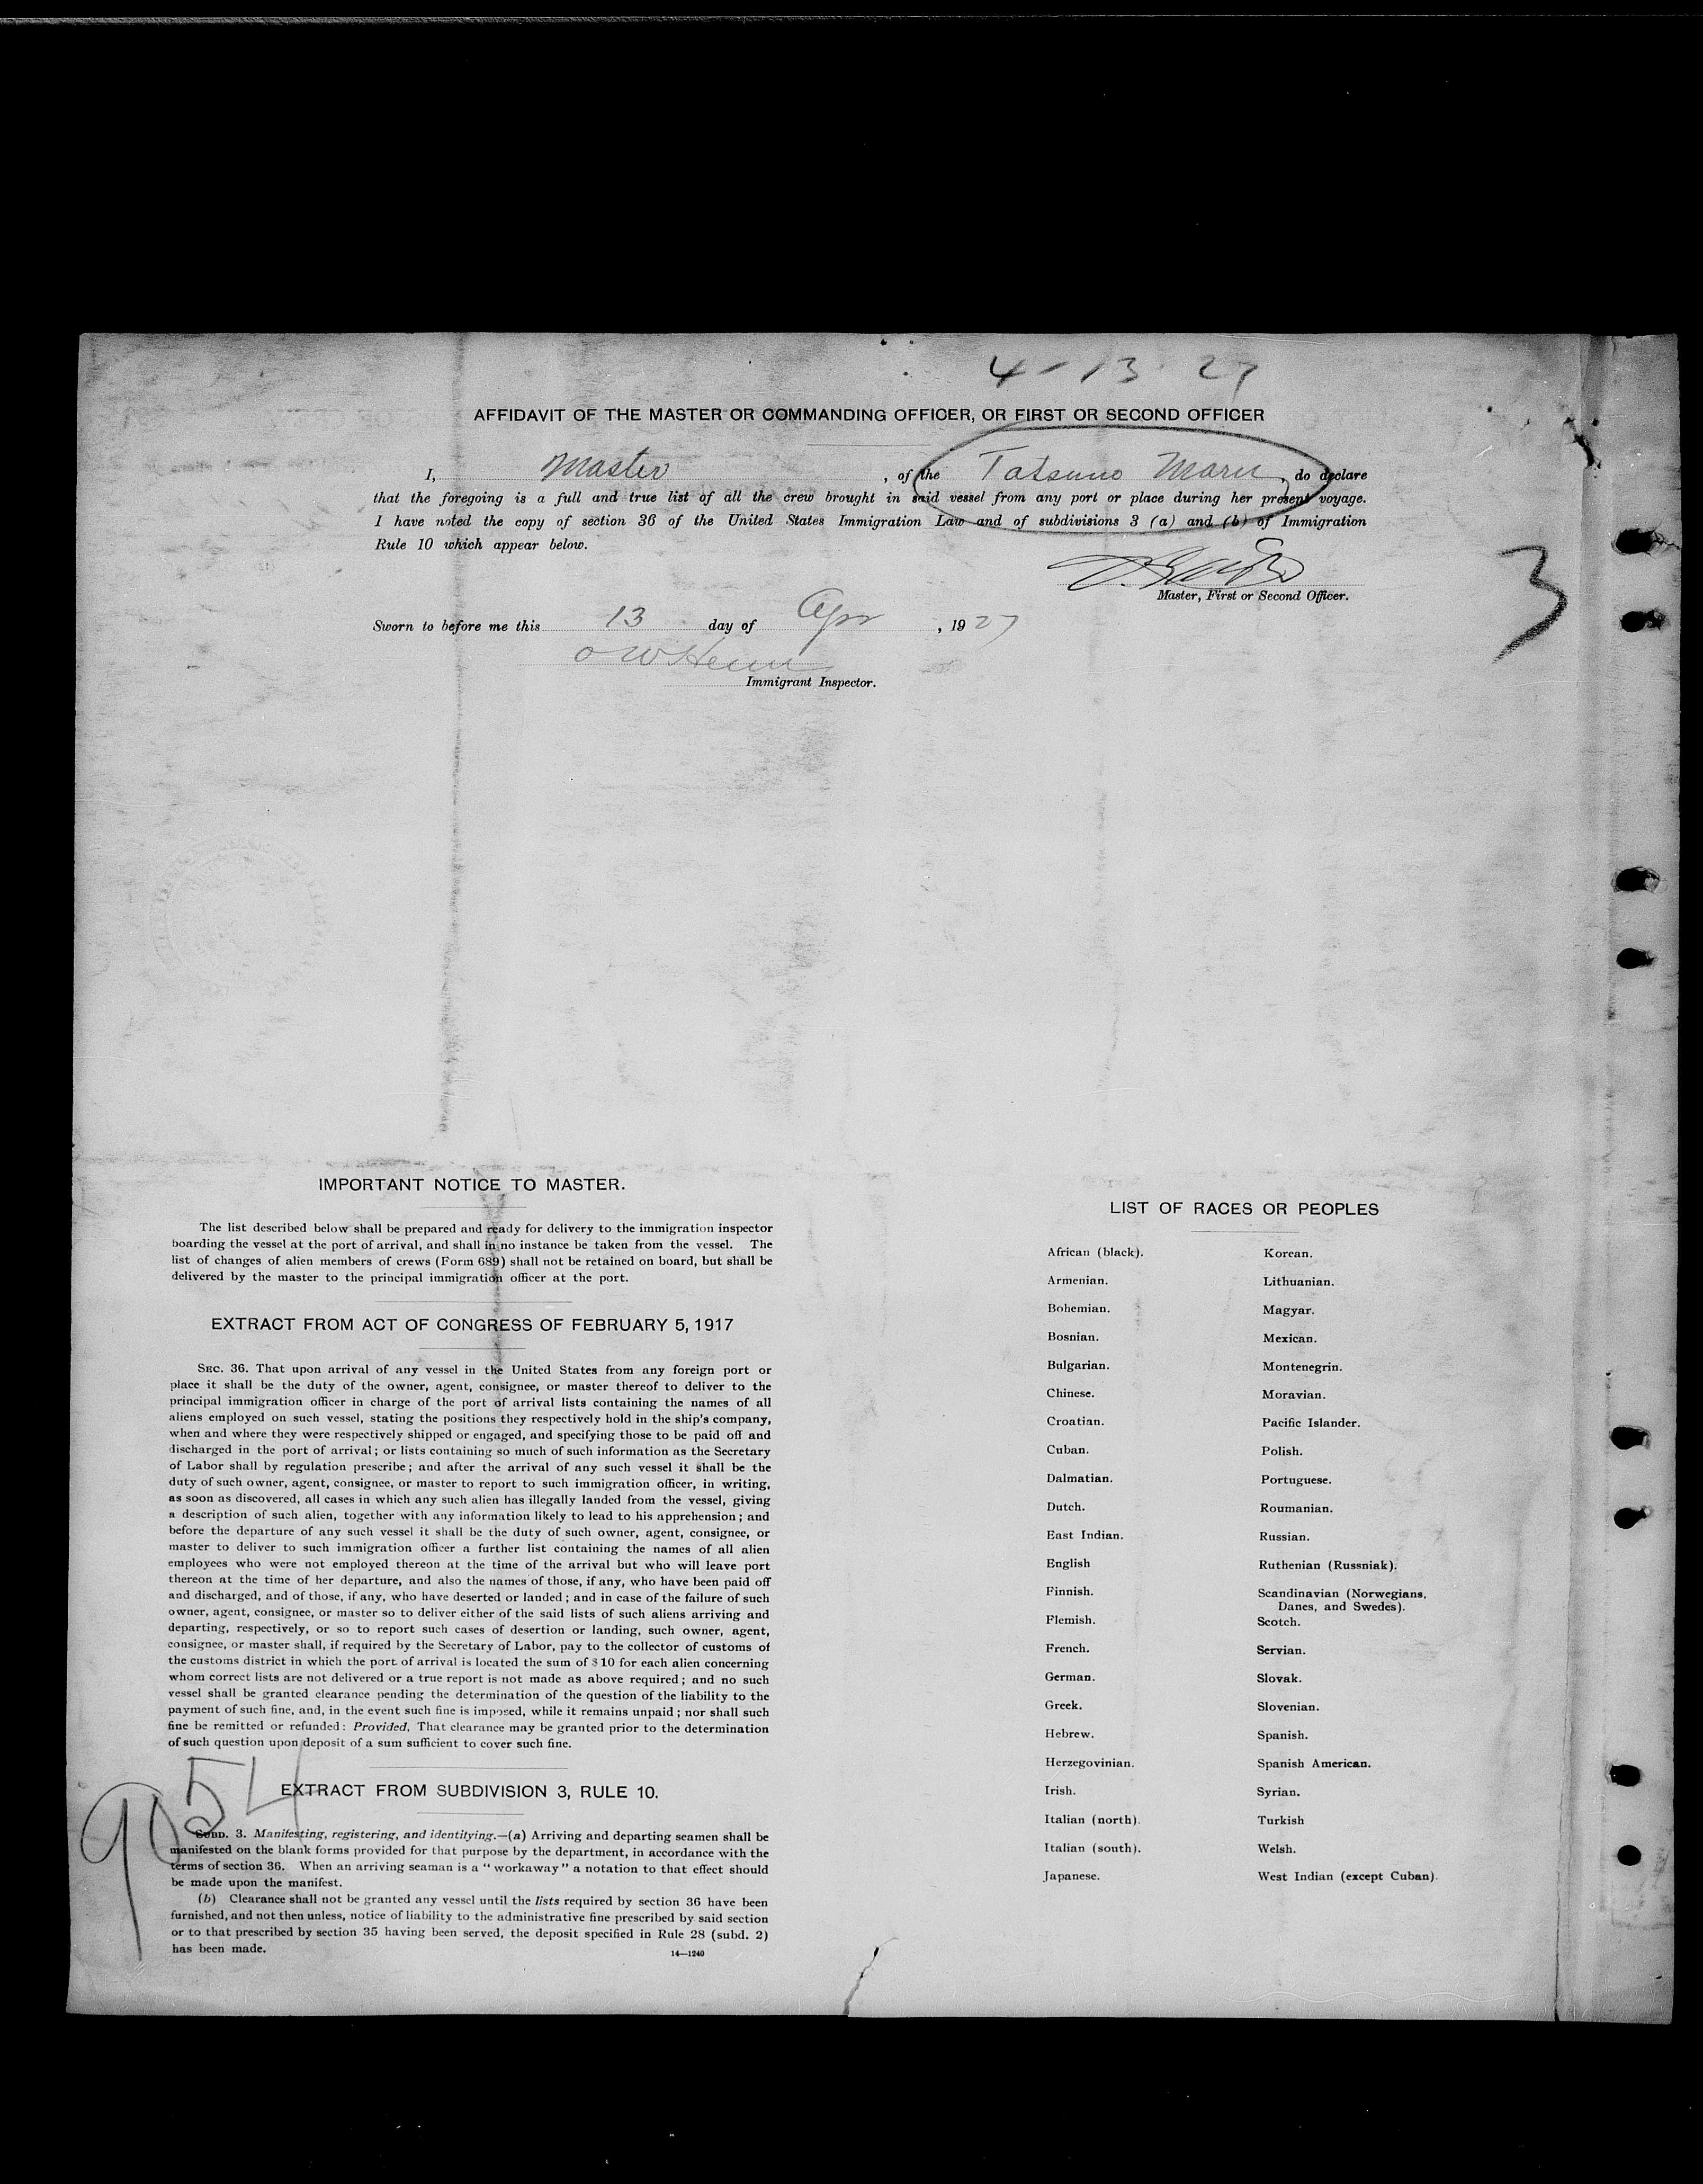 4-13-27
AFFIDAVIT OF THE MASTER OR COMMANDING OFFICER, OR FIRST OR SECOND OFFICER
I, Master, of the Tatsuno Maru, do declare
that the foregoing is a full and true list of all the crew brought in said vessel from any port or place during her present voyage.
I have noted the copy of section 36 of the United States Immigration Law and of subdivisions 3 (a) and (b) of Immigration
Rule 10 which appear below.
3
Master, First or Second Officer.
Sworn to before me this 13 day of Apr, 1927
O W
Immigrant Inspector.
IMPORTANT NOTICE TO MASTER.
The list described below shall be prepared and ready for delivery to the immigration inspector
boarding the vessel at the port of arrival, and shall in no instance be taken from the vessel. The
list of changes of alien members of crews (Form 689) shall not be retained on board, but shall be
delivered by the master to the principal immigration officer at the port.
EXTRACT FROM ACT OF CONGRESS OF FEBRUARY 5, 1917
SEC. 36. That upon arrival of any vessel in the United States from any foreign port or
place it shall be the duty of the owner, agent, consignee, or master thereof to deliver to the
principal immigration officer in charge of the port of arrival lists containing the names of all
aliens employed on such vessel, stating the positions they respectively hold in the ship's company,
when and where they were respectively shipped or engaged, and specifying those to be paid off and
discharged in the port of arrival; or lists containing so much of such information as the Secretary
of Labor shall by regulation prescribe; and after the arrival of any such vessel it shall be the
duty of such owner, agent, consignee, or master to report to such immigration officer, in writing,
as soon as discovered, all cases in which any such alien has illegally landed from the vessel, giving
a description of such alien, together with any information likely to lead to his apprehension; and
before the departure of any such vessel it shall be the duty of such owner, agent, consignee, or
master to deliver to such immigration officer a further list containing the names of all alien
employees who were not employed thereon at the time of the arrival but who will leave port
thereon at the time of her departure, and also the names of those, if any, who have been paid off
and discharged, and of those, if any, who have deserted or landed; and in case of the failure of such
owner, agent, consignee, or master so to deliver either of the said lists of such aliens arriving and
departing, respectively, or so to report such cases of desertion or landing, such owner, agent,
consignee, or master shall, if required by the Secretary of Labor, pay to the collector of customs of
the customs district in which the port of arrival is located the sum of $10 for each alien concerning
whom correct lists are not delivered or a true report is not made as above required; and no such
vessel shall be granted clearance pending the determination of the question of the liability to the
payment of such fine, and, in the event such fine is imposed, while it remains unpaid; nor shall such
fine be remitted or refunded: Provided, That clearance may be granted prior to the determination
of such question upon deposit of a sum sufficient to cover such fine.
9054
EXTRACT FROM SUBDIVISION 3, RULE 10.
SUBD. 3. Manifesting, registering, and identifying.—(a) Arriving and departing seamen shall be
manifested on the blank forms provided for that purpose by the department, in accordance with the
terms of section 36. When an arriving seaman is a "workaway" a notation to that effect should
be made upon the manifest.
(b) Clearance shall not be granted any vessel until the lists required by section 36 have been
furnished, and not then unless, notice of liability to the administrative fine prescribed by said section
or to that prescribed by section 35 having been served, the deposit specified in Rule 28 (subd. 2)
has been made.
14—1240
LIST OF RACES OR PEOPLES
African (black).
Armenian.
Bohemian.
Bosnian.
Bulgarian.
Chinese.
Croatian.
Cuban.
Dalmatian.
Dutch.
East Indian.
English
Finnish.
Flemish.
French.
German.
Greek.
Hebrew.
Herzegovinian.
Irish.
Italian (north).
Italian (south).
Japanese.
Korean.
Lithuanian.
Magyar.
Mexican.
Montenegrin.
Moravian.
Pacific Islander.
Polish.
Portuguese.
Roumanian.
Russian.
Ruthenian (Russniak).
Scandinavian (Norwegians,
Danes, and Swedes).
Scotch.
Servian.
Slovak.
Slovenian.
Spanish.
Spanish American.
Syrian.
Turkish
Welsh.
West Indian (except Cuban).